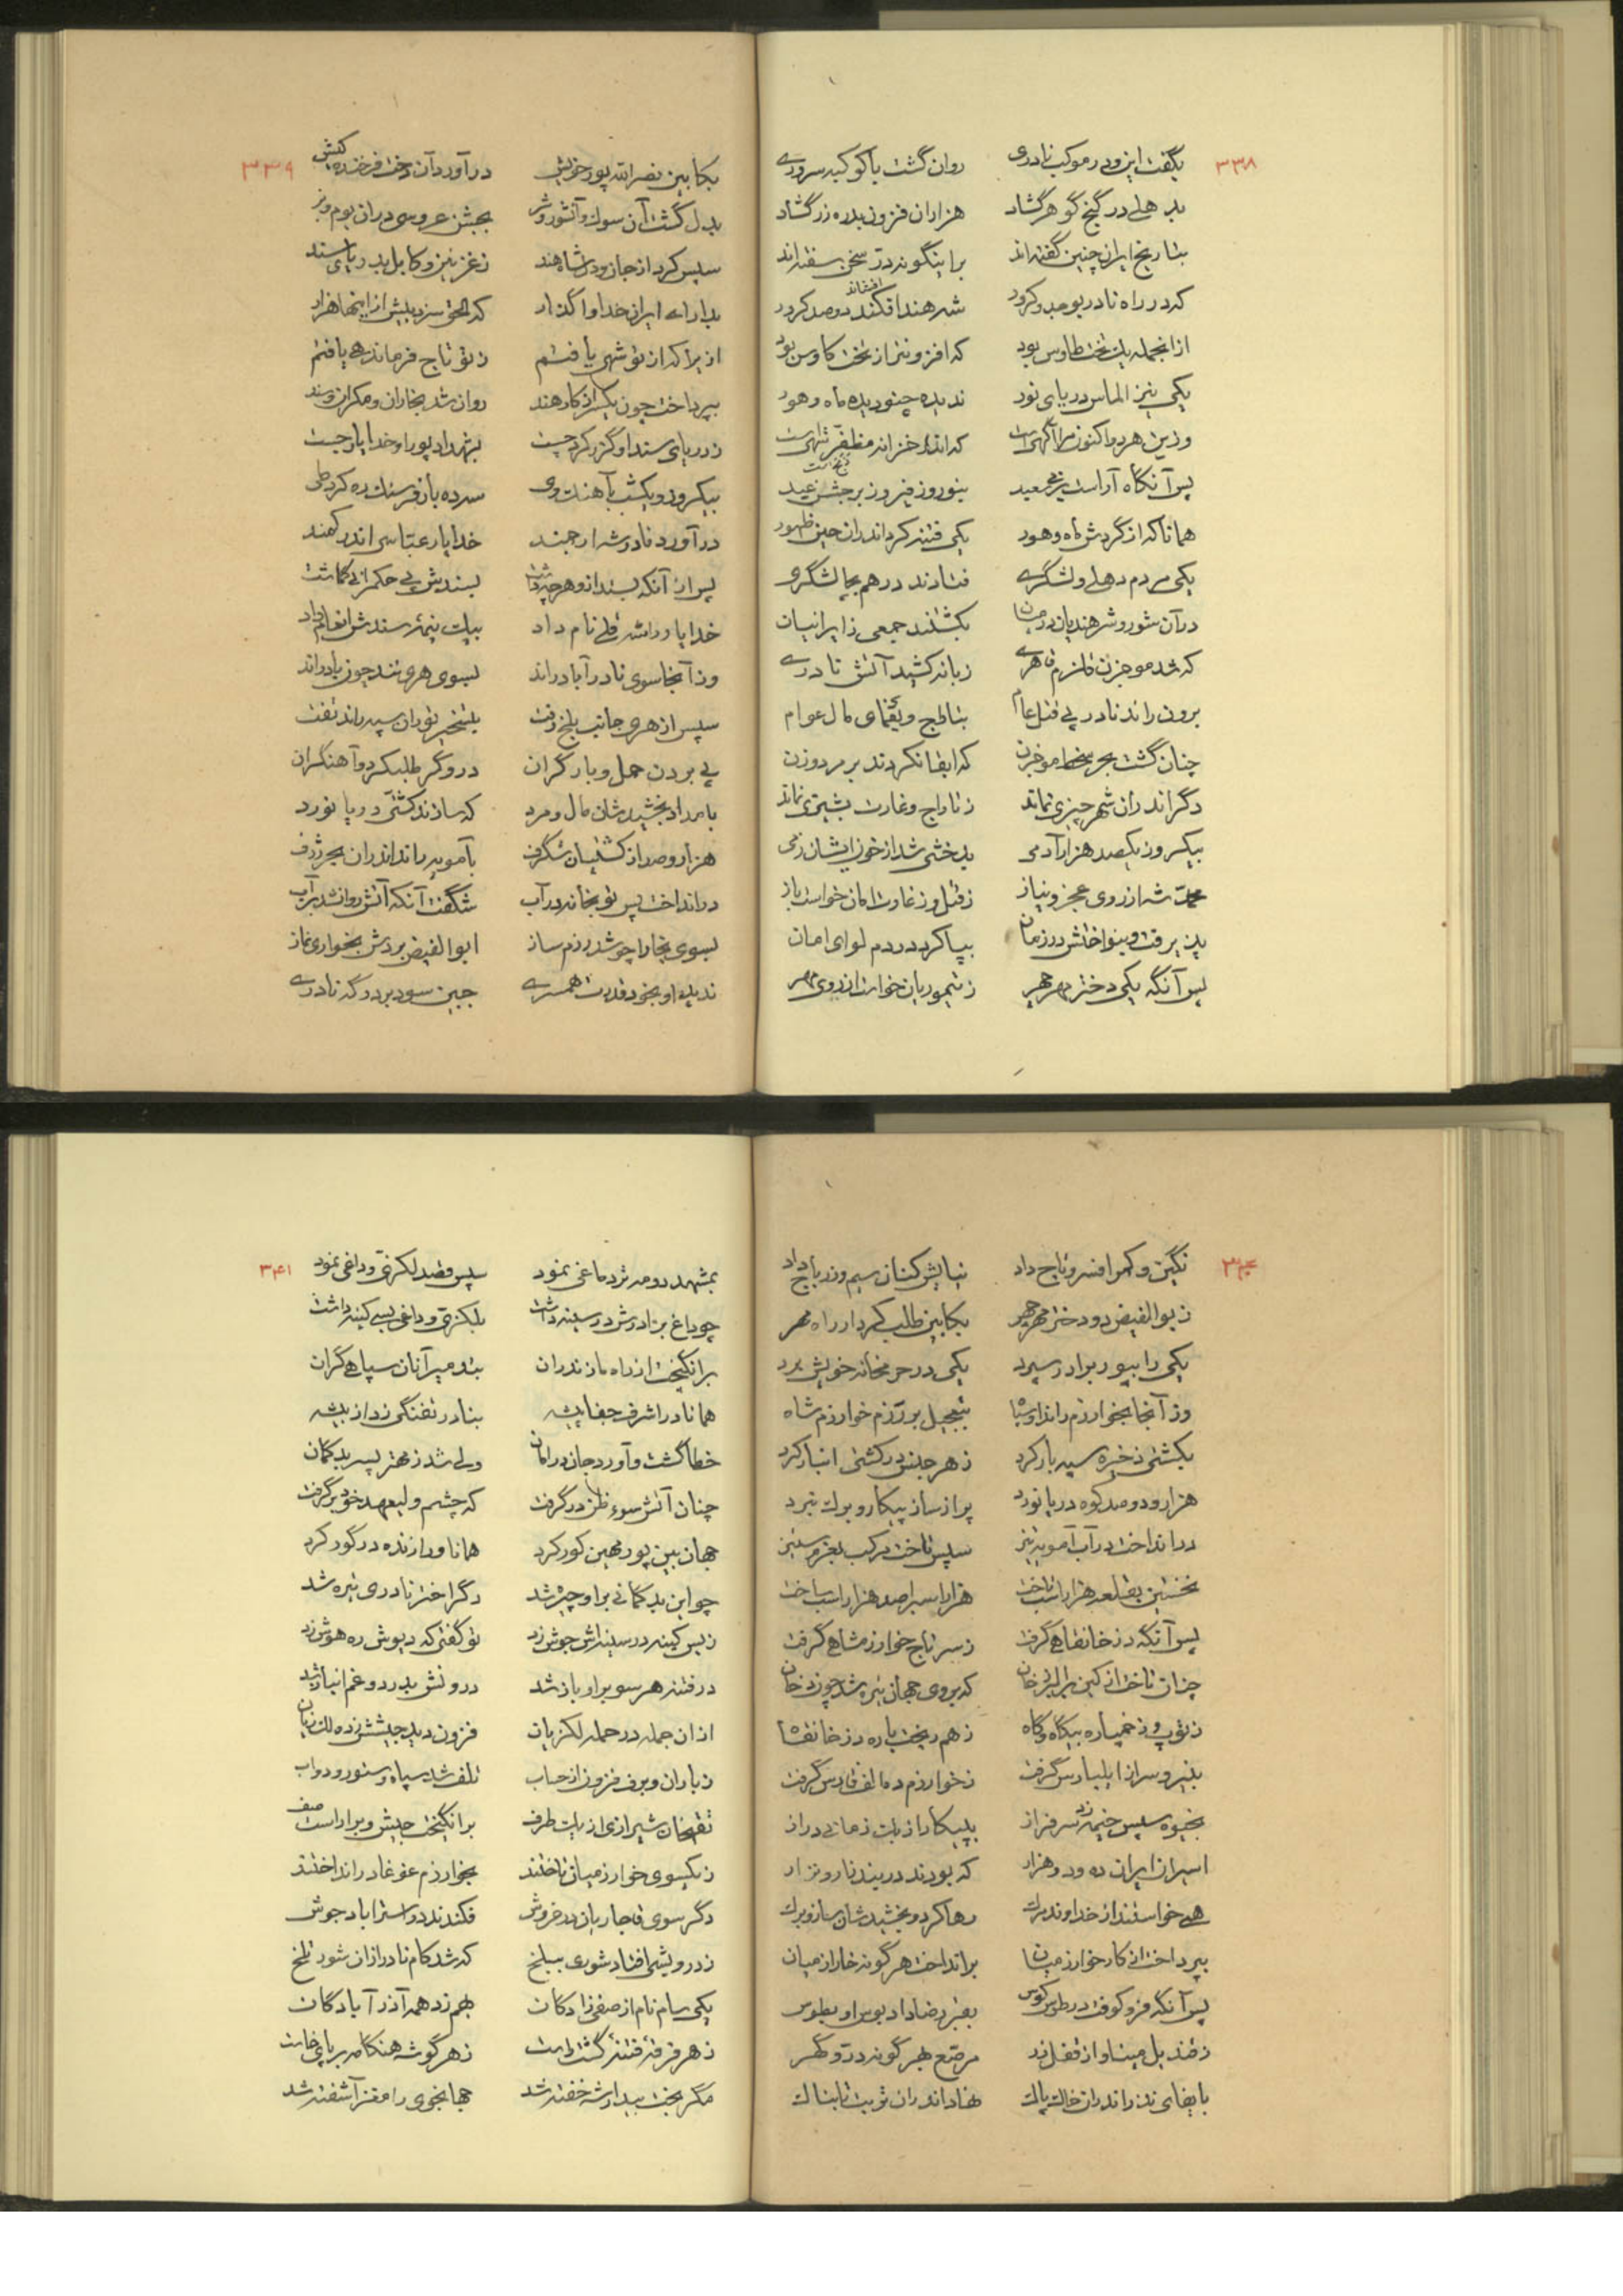 ۳۳۸
بگفت این و در موکب نادری روان گشت با کوکبه سروری
بدهلی در گنج گوهر گشاد هزاران فزون بدره زر گشاد
بتاریخ ایران چنین گفته‌اند براینگونه در سخن سفته‌اند
که در راه نادر بوجد و کرور شه هند افکند دو صد کرور
افشاند
از انجمله یک تخت طاوس بود که افزونتر از تخت کاوس بود
یکی نیز الماس دریای نور ندیده چنو دیده ماه و هور
وزین هر دو اکنون مرا آگهی است که اندر خزانه مظفر شهی است
پس آنگاه آراست بزم سعید بنوروز فیروز بر جشن عید
همانا که از گردش ماه و هور یکی فتنه کرد اندران حین ظهور
یکی مردم دهلی و لشگری فتادند در هم بچالشگری
در آن شور و شر هندیان در میان بکشتند جمعی ز ایرانیان
که شد موجزن قلزم قاهری زبانه کشید آتش نادری
برون راند نادر پی قتل عام بتالج و یغمای مال عوام
چنان گشت بحر سخط موجزن که ابقا نکردند بر مرد و زن
دگر اندران شهر چیزی نماند ز تاراج و غارت پشیزی نماند
بیکروز یکصد هزار آدمی بدخشی شد از خون ایشان زمی
محمد شه از روی عجز و نیاز ز قتل و ز غارت امان خواست باز
پذیرفت و بنواختش در زمان بپا کرد در دم لوای امان
پس آنگه یکی دختر مهر چهر ز تیموریان خواست از روی مهر
۳۳۹
بکابین نصرالله پور خویش در آورد آن دخت فرخنده کیش
بدل گشت آن سوک و آشور و شر بجشن عروسی در آن بوم و بر
سپس کرد از جان و دل شاه هند ز غزنین و کابل بدریای سند
بدارای ایران خدا واگذار که الحق سزد بیش از اینها هزار
ازیرا که از تو شهی یافتم ز تو تاج فرماندهی یافتم
بپرداخت چون یکسر از کار هند روان شد بخاران و مکران و سند
ز دریای سند او گذر کرد چست
بیکروز و یکشب بآهنگ وی سه ده باز فرسنگ ره کرد طی
در آورد نادر شه ارجمند خدایار عباسی اندر کمند
پس از آنکه بستد ازو هر چه داشت بسندش پی حکمرانی گماشت
خدایار را شه قلی نام داد بیک نیمه سندش انعام داد
وز آنجا سوی نادرآباد راند بسوی هری تند چون باد راند
سپس از هری جانب بلخ رفت بتسخیر توران سپه راند تفت
پی بردن حمل و بار گران دروگر طلب کرد و آهنگران
بامداد بخشیدشان مال و مرد که سازند کشتی دریا نورد
هزار و صد از کشتیان شگرف بآمویه راند اندران بحر ژرف
در انداخت پس توپخانه در آب شگفت آنکه آتش روان شد بر آب
بسوی بخارا چو شد رزم ساز ابوالفیض بردش بخواری نماز
ندید او بخود قدرت همسری جبین سود بر درگه نادری
۳۴۰
نگین و کمر افسر و تاج داد نیایش کنان سیم و زر باج داد
ز بوالفیض دو دختر مهر چهر بکابین طلب کرد از راه مهر
یکی را بپور برادر سپرد یکی در حرمخانه خویش برد
وز آنجا بخوارزم راند او سپاه بتعجیل بر رزم خوارزم شاه
بکشتی ذخیره سپه بار کرد ز هر جنس در کشتی انبار کرد
هزار و دو صد کوه دریا نورد پر از ساز پیکار و برگ نبرد
در انداخت در آب آمویه نیز سپس تاخت مرکب بعزم ستیز
نخستین بقلعه هزار اسب تاخت هزار اسبرا صد هزار اسب ساخت
پس آنگه دز خانقاهی گرفت ز سر تاج خوارزمشاهی گرفت
چنان تاخت از کین بر ایلبرز خان که بروی جهان تیره شد چون دخان
ز توپ و ز خمپاره بیگاه و گاه ز هم ریخت باره دز خانقاه
بنیرو سر از ایلبارس گرفت ز خوارزم دمالف فارس گرفت
بخیوه سپس خیمه زد سرفراز بپیکار از یک زمانی دراز
اسیران ایران ده و دو هزار که بودند در بند نار و نزار
همی خواستند از خداوند مرگ رها کرد و بخشیدشان ساز و برگ
بپرداخت از کار خوارزمیان برانداخت هر گونه خار از میان
پس آنگه فرو کوفت در طوس کوس بقبر رضا داد بوس او بطوس
ز قندیل مینا و از قفل زر مرصع بهر گونه در و گهر
بایفای نذر اندران خاک پاک نهاد اندران تربت تابناک
۳۴۱
بمشهد دو مه تر دماغی نمود سپس قصد لکزی و داغی نمود
چو داغ برادرش در سینه داشت بلکزی و داغی بسی کینه داشت
برانگیخت از راه مازندران بتدمیر آنان سپاهی گران
همانا در اشرف جفا پیشه بنادر تفنگی زد از بیشه
خطا گشت و آورد جان در امان ولی شد ز مهتر پسر بدگمان
چنان آتش سوء ظن در گرفت که چشم ولیعهد خود بر گرفت
جهان بین پور مهین کور کرد همانا ورا زنده در گور کرد
چو این بدگمانی بر او چیره شد دگر اختر نادری تیره شد
ز بس کینه در سینه‌اش جوش زد تو گفتی که دیوش ره هوش زد
در فتنه هر سو بر او باز شد درونش بدرد و غم انباز شد
از آن جمله در حمله لکزیان فزون دید جیشش ز ده لک زیان
ز باران و برف فزون از حساب تلف شد سپاه و ستور و دواب
تقیخان شیرازی از یک طرف برانگیخت جیش و بر آراست صف
ز یکسوی خوارزمیان تاختند بخوارزم غوغا در انداختند
دگر سوی قاجاریان در خروش فکندند در استراباد جوش
ز درویشی افتاد شوری ببلخ که شد کام نادر از آن شور تلخ
یکی سام نام از صفی زادگان بهم زد همه آذرآبادگان
ز هر فرقه فتنه گشت راست ز هر گوشه هنگامه بر پای خاست
مگر بخت بیدار شه خفته شد جهانجوی را مغز آشفته شد